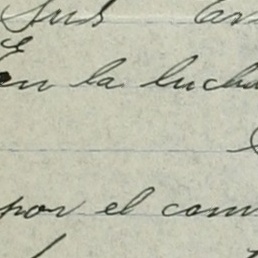 Sus
En la lucha
por el com